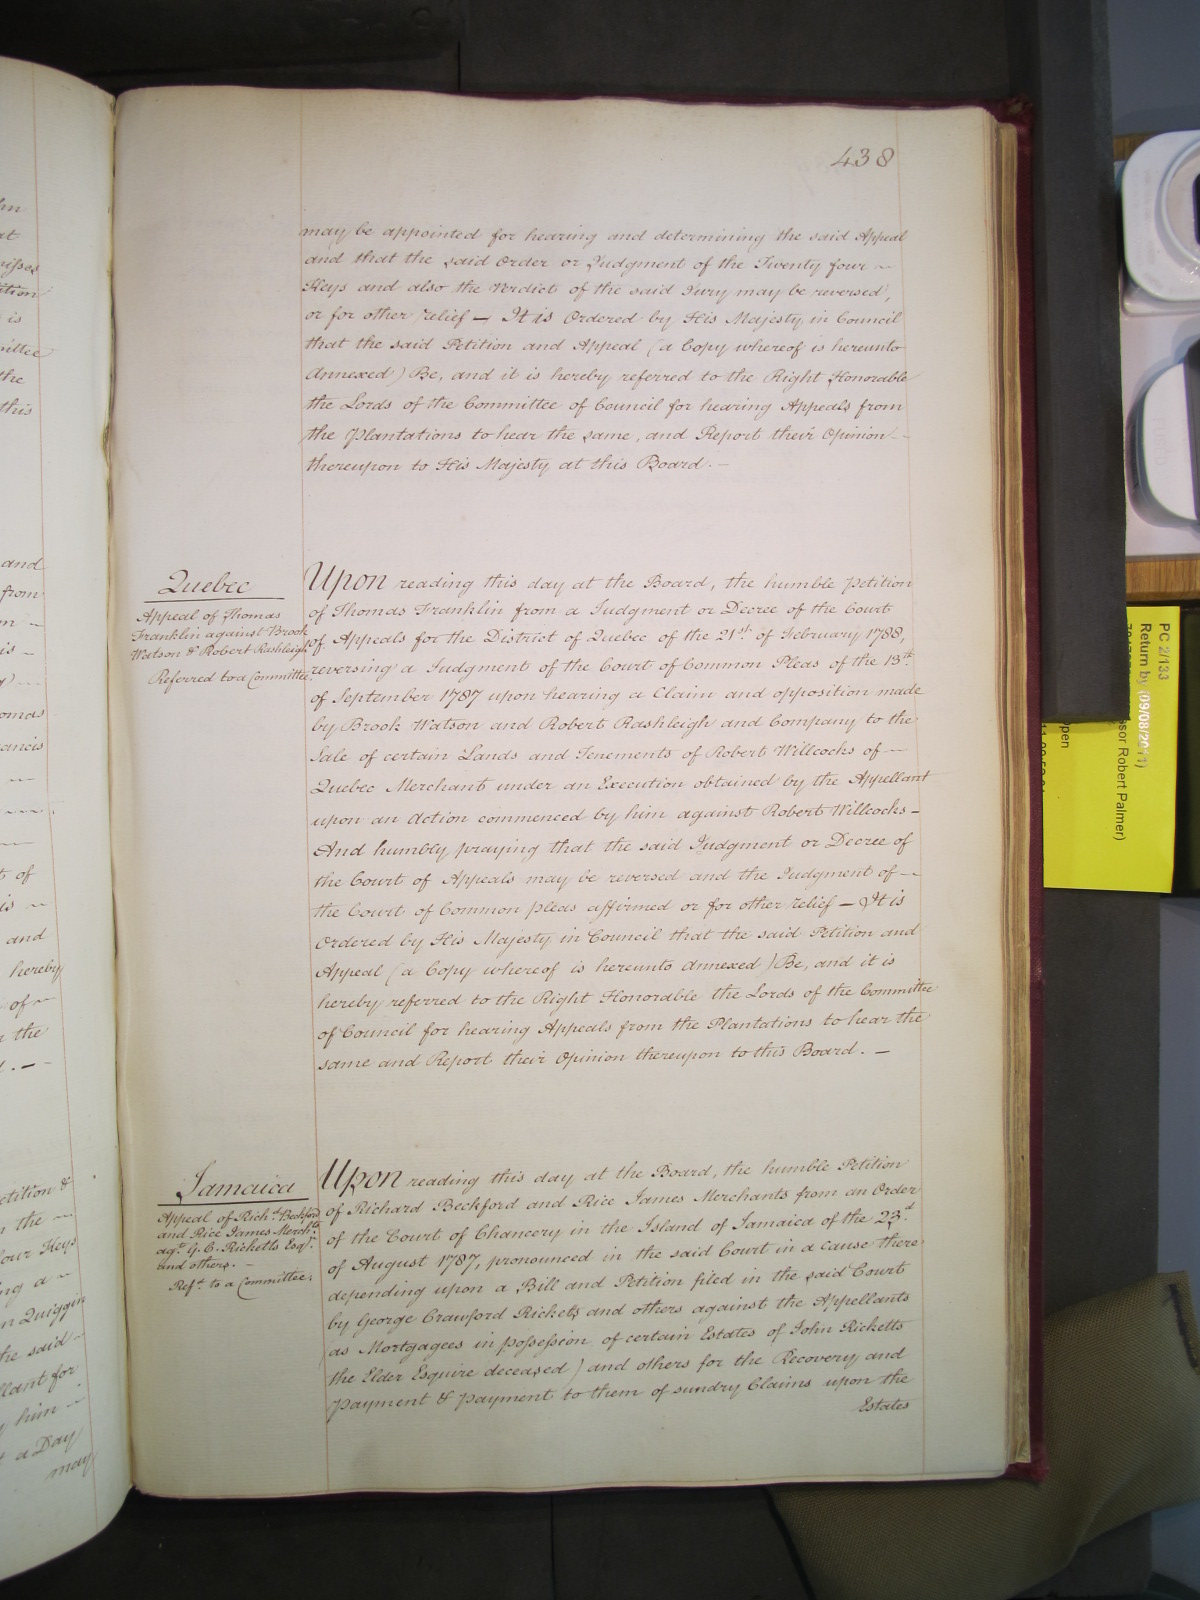 438
may be appointed for hearing and determining the said Appeal
and that the said Order or Judgment of the Twenty four ~
Keys and also the Verdict of the said Jury may be reversed,
or for other relief — It is Ordered by His Majesty in Council
that the said Petition and Appeal (a Copy whereof is hereunto
Annexed) Be, and it is hereby referred to the Right Honorable
the Lords of the Committee of Council for hearing Appeals from
the Plantations to hear the same, and Report their Opinion —
thereupon to His Majesty at this Board. —
Quebec
Appeal of Thomas
Franklin against Brook
Watson & Robert Rashleigh
Referred to a Committee.
Upon reading this day at the Board, the humble Petition
of Thomas Franklin from a Judgment or Decree of the Court
of Appeals for the District of Quebec of the 21st of February 1788,
reversing a Judgment of the Court of Common Pleas of the 13th
of September 1787 upon hearing a Claim and opposition made
by Brook Watson and Robert Rashleigh and Company to the
Sale of certain Lands and Tenements of Robert Willcocks of —
Quebec Merchant under an Execution obtained by the Appellant
upon an Action commenced by him against Robert Willcocks —
And humbly praying that the said Judgment or Decree of
the Court of Appeals may be reversed and the Judgment of —
the Court of Common Pleas affirmed or for other relief — It is
Ordered by His Majesty in Council that the said Petition and
Appeal (a Copy whereof is hereunto Annexed) Be, and it is
hereby referred to the Right Honorable the Lords of the Committee
of Council for hearing Appeals from the Plantations to hear the
same and Report their Opinion thereupon to this Board. —
Jamaica
Appeal of Richd. Beckford
and Rice James Merchts.
agt. G. C. Ricketts Esqr.
and others. —
Refd. to a Committee.
Upon reading this day at the Board, the humble Petition
of Richard Beckford and Rice James Merchants from an Order
of the Court of Chancery in the Island of Jamaica of the 23d.
of August 1787, pronounced in the said Court in a cause there
depending upon a Bill and Petition filed in the said Court
by George Crawford Ricketts and others against the Appellants
as Mortgagees in possession of certain Estates of John Ricketts
the Elder Esquire deceased) and others for the Recovery and
payment & payment to them of sundry Claims upon the
Estates
PC 2/133
Return by (09/08/2011)
ssor Robert Palmer)